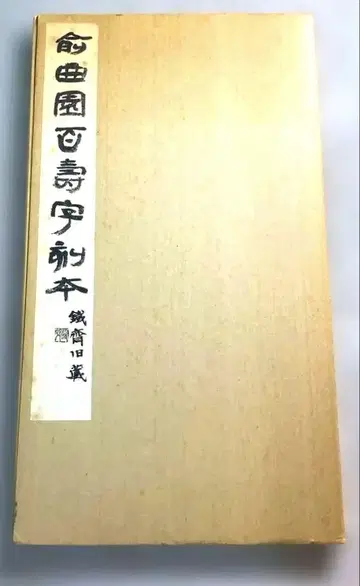 俞曲園百壽字刻本
鐵齊旧藏